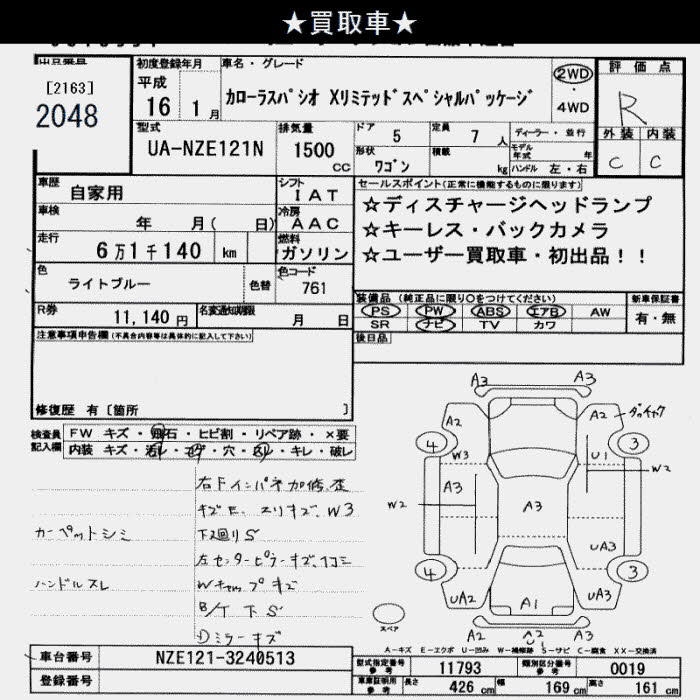 ★買取車★
出品番号
[2163]
2048
初度登録年月
平成
16 1月
車名・グレード
カローラスパシオ Xリミテッドスペシャルパッケージ
2WD
4WD
評価点
R
外装 内装
C C
型式
UA-NZE121N
排気量
1500
CC
ドア 5
定員 7人
形状 ワゴン
積載 kg
ディーラー・並行
モデル年式 年
ハンドル 左・右
車歴
自家用
シフト
IAT
車検
年 月( 日)
冷房
AAC
走行
6万1千140 km
燃料
ガソリン
色
ライトブルー
色替
色コード
761
R券
11,140円
名変通知期限
月 日
セールスポイント(正常に機能するものに限ります)
☆ディスチャージヘッドランプ
☆キーレス・バックカメラ
☆ユーザー買取車・初出品!!
装備品 (純正品に限り○をつけてください)
PS PW ABS エアB AW
SR ナビ TV カワ
新車保証書
有・無
後日品
注意事項申告欄(不具合内容等は具体的に記入して下さい)
修復歴 有〔箇所 〕
検査員記入欄
FW キズ・飛石・ヒビ割・リペア跡・×要
内装 キズ・汚レ・コゲ・穴・凹・キレ・破レ
右Fインパネ加修、歪
キズE、スリキズ、W3
カーペットシミ
下廻りS
左センターピラーキズ、凹コミ
ハンドルスレ
Wキャップキズ
B/T下S
Dミラーキズ
A3 A3
A2 A2
4 3
W3 U1
A3 W2
W2
A3
UA3
4 3
UA2 A1 UA3
A2 U2 A3
スペア
A-キズ E-エクボ U-凹み W-補修跡 S-サビ C-腐食 XX-交換済
車台番号
NZE121-3240513
登録番号
型式指定番号 参考
11793
類別区分番号 参考
0019
車庫証明用 参考
長さ 426 cm
幅 169 cm
高さ 161 cm